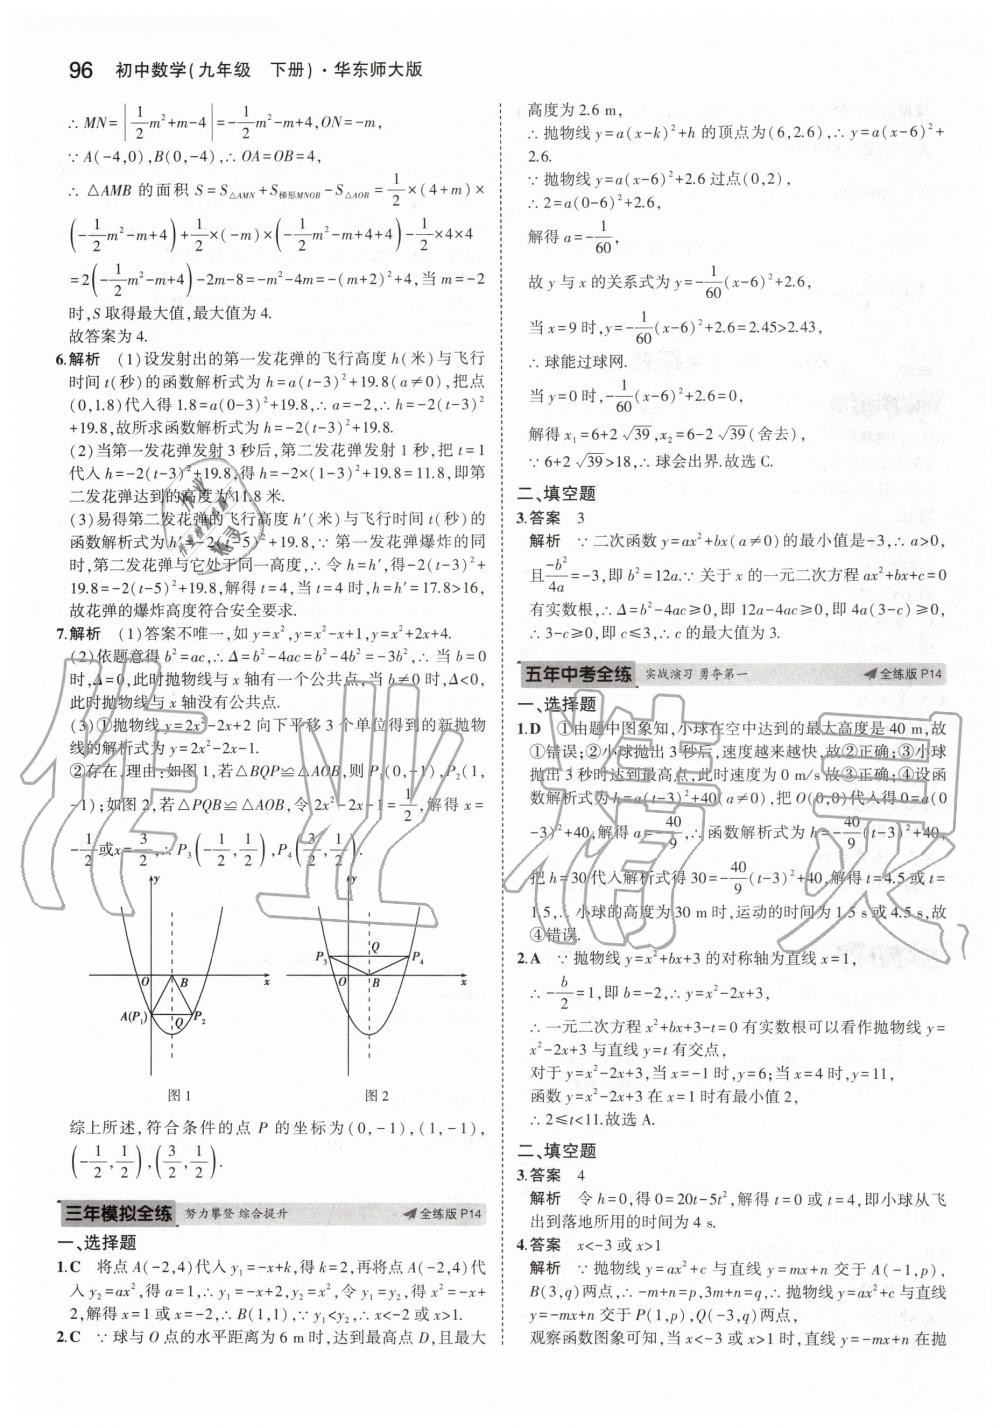 96 初中数学(九年级 下册)·华东师大版
∴ MN=|1/2 m²+m-4|=-1/2 m²-m+4,ON=-m,
∵ A(-4,0),B(0,-4),∴ OA=OB=4,
∴ △AMB 的面积 S=S△AMN+S梯形MNOB-S△AOB=1/2×(4+m)×
(-1/2 m²-m+4)+1/2×(-m)×(-1/2 m²-m+4+4)-1/2×4×4
=2(-1/2 m²-m+4)-2m-8=-m²-4m=-(m+2)²+4,当 m=-2
时,S 取得最大值,最大值为 4.
故答案为 4.
6.解析 (1)设发射出的第一发花弹的飞行高度 h(米)与飞行
时间 t(秒)的函数解析式为 h=a(t-3)²+19.8(a≠0),把点
(0,1.8)代入得 1.8=a(0-3)²+19.8,∴ a=-2,∴ h=-2(t-3)²
+19.8,故所求函数解析式为 h=-2(t-3)²+19.8.
(2)当第一发花弹发射 3 秒后,第二发花弹发射 1 秒,把 t=1
代入 h=-2(t-3)²+19.8,得 h=-2×(1-3)²+19.8=11.8,即第
二发花弹达到的高度为 11.8 米.
(3)易得第二发花弹的飞行高度 h′(米)与飞行时间 t(秒)的
函数解析式为 h′=-2(t-5)²+19.8,∵ 第一发花弹爆炸的同
时,第二发花弹与它处于同一高度,∴ 令 h=h′,得-2(t-3)²+
19.8=-2(t-5)²+19.8,解得 t=4,当 t=4 时,h=h′=17.8>16,
故花弹的爆炸高度符合安全要求.
7.解析 (1)答案不唯一,如 y=x²,y=x²-x+1,y=x²+2x+4.
(2)依题意得 b²=ac,∴ Δ=b²-4ac=b²-4b²=-3b²,∴ 当 b=0
时,Δ=0,此时抛物线与 x 轴有一个公共点,当 b≠0 时,Δ<0,
此时抛物线与 x 轴没有公共点.
(3)①抛物线 y=2x²-2x+2 向下平移 3 个单位得到的新抛物
线的解析式为 y=2x²-2x-1.
②存在,理由:如图 1,若△BQP≌△AOB,则 P₁(0,-1),P₂(1,
-1);如图 2,若△PQB≌△AOB,令 2x²-2x-1=1/2,解得 x=
-1/2 或 x=3/2,∴ P₃(-1/2,1/2),P₄(3/2,1/2).
y
O B x
A(P₁) Q P₂
图 1
y
P₃ Q P₄
O B x
图 2
综上所述,符合条件的点 P 的坐标为(0,-1),(1,-1),
(-1/2,1/2),(3/2,1/2).
三年模拟全练 努力攀登 综合提升 全练版 P14
一、选择题
1.C 将点 A(-2,4)代入 y₁=-x+k,得 k=2,再将点 A(-2,4)代
入 y₂=ax²,得 a=1,∴ y₁=-x+2,y₂=x²,令 y₁=y₂,得 x²=-x+
2,解得 x=1 或 x=-2,∴ B(1,1),∵ y₁<y₂,∴ x<-2 或 x>1.
2.C ∵ 球与 O 点的水平距离为 6 m 时,达到最高点 D,且最大
高度为 2.6 m,
∴ 抛物线 y=a(x-k)²+h 的顶点为(6,2.6),∴ y=a(x-6)²+
2.6.
∵ 抛物线 y=a(x-6)²+2.6 过点(0,2),
∴ 2=a(0-6)²+2.6,
解得 a=-1/60,
故 y 与 x 的关系式为 y=-1/60(x-6)²+2.6,
当 x=9 时,y=-1/60(x-6)²+2.6=2.45>2.43,
∴ 球能过球网.
当 y=0 时,-1/60(x-6)²+2.6=0,
解得 x₁=6+2√39,x₂=6-2√39(舍去),
∵ 6+2√39>18,∴ 球会出界.故选 C.
二、填空题
3.答案 3
解析 ∵ 二次函数 y=ax²+bx(a≠0)的最小值是-3,∴ a>0,
且-b²/4a=-3,即 b²=12a.∵ 关于 x 的一元二次方程 ax²+bx+c=0
有实数根,∴ Δ=b²-4ac≥0,即 12a-4ac≥0,即 4a(3-c)≥0,
∴ 3-c≥0,即 c≤3,∴ c 的最大值为 3.
五年中考全练 实战演习 勇夺第一 全练版 P14
一、选择题
1.D ①由题中图象知,小球在空中达到的最大高度是 40 m,故
①错误;②小球抛出 3 秒后,速度越来越快,故②正确;③小球
抛出 3 秒时达到最高点,此时速度为 0 m/s 故③正确;④设函
数解析式为 h=a(t-3)²+40(a≠0),把 O(0,0)代入得 0=a(0
-3)²+40,解得 a=-40/9,∴ 函数解析式为 h=-40/9(t-3)²+40,
把 h=30 代入解析式得 30=-40/9(t-3)²+40,解得 t=4.5 或 t=
1.5,∴ 小球的高度为 30 m 时,运动的时间为 1.5 s 或 4.5 s,故
④错误.
2.A ∵ 抛物线 y=x²+bx+3 的对称轴为直线 x=1,
∴ -b/2=1,即 b=-2,∴ y=x²-2x+3,
∴ 一元二次方程 x²+bx+3-t=0 有实数根可以看作抛物线 y=
x²-2x+3 与直线 y=t 有交点,
对于 y=x²-2x+3,当 x=-1 时,y=6;当 x=4 时,y=11,
函数 y=x²-2x+3 在 x=1 时有最小值 2,
∴ 2≤t<11.故选 A.
二、填空题
3.答案 4
解析 令 h=0,得 0=20t-5t²,解得 t=0 或 t=4,即小球从飞
出到落地所用的时间为 4 s.
4.答案 x<-3 或 x>1
解析 ∵ 抛物线 y=ax²+c 与直线 y=mx+n 交于 A(-1,p),
B(3,q)两点,∴ -m+n=p,3m+n=q,∴ 抛物线 y=ax²+c 与直线
y=-mx+n 交于 P(1,p),Q(-3,q)两点,
观察函数图象可知,当 x<-3 或 x>1 时,直线 y=-mx+n 在抛
作业精灵